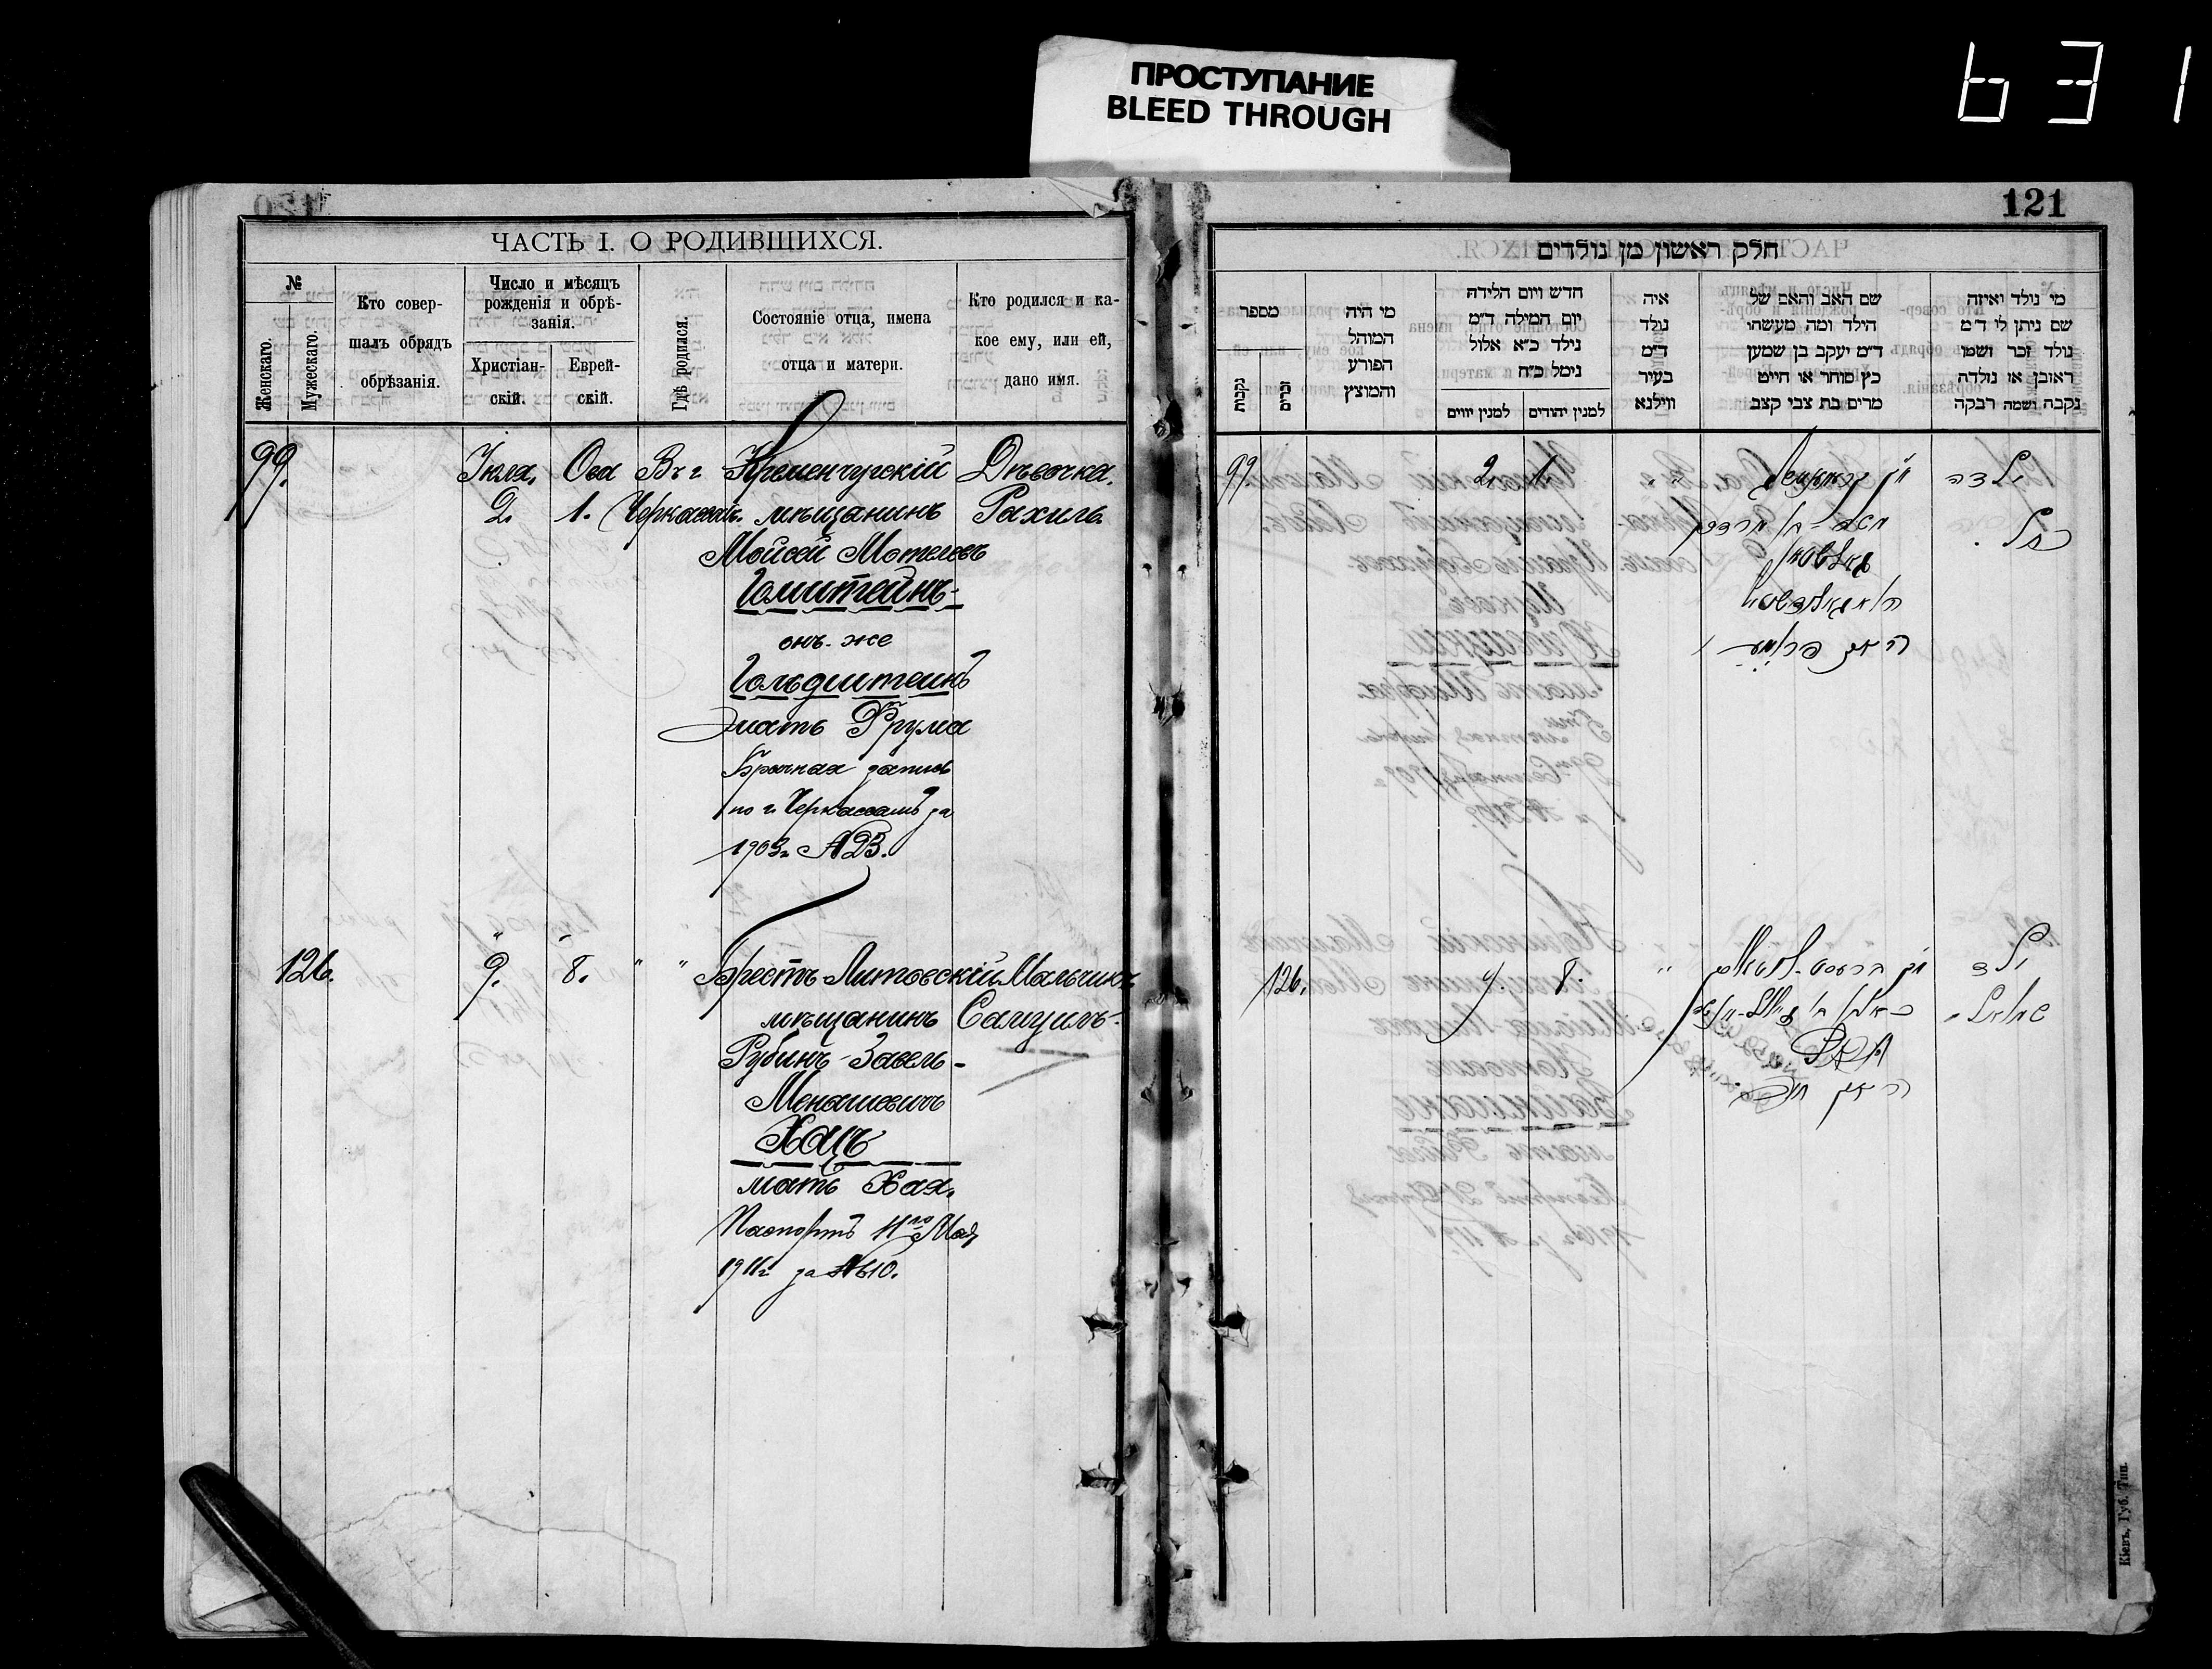 ПРОСТУПАНИЕ
BLEED THROUGH
631
121
ЧАСТЬ I. О РОДИВШИХСЯ.
№
Женскаго.
Мужескаго.
Кто совер-
шалъ обрядъ
обрѣзанія.
Число и мѣсяцъ
рожденія и обрѣ-
занія.
Христіан-
скій.
Еврей-
скій.
Гдѣ родился.
Состояніе отца, имена
отца и матери.
Кто родился и ка-
кое ему, или ей,
дано имя.
99. Іюля, Ова Въ г Кременчугскій Дѣвочка.
2. 1. Черкассахъ. мѣщанинъ Рахиль.
Мойсей Мотелевъ
Гомштейнъ-
онъ-же
Гольдштейнъ
мать Фрума
Брачная запись
по г. Черкассамъ за
1903г. №23.
126. " 9. " 8. " " Брестъ-Литовскій Мальчикъ
мѣщанинъ Самуилъ.
Рубинъ-Завель-
Менашевичъ
Хацъ
мать Хая.
Паспортъ 11го Мая
1911г за №610.
חלק ראשון מן נולדים
מספר
נקבות
זכרים
מי היה
המוהל
הפורע
והמוצץ
חדש ויום הלידה
יום המילה ד"מ
נילד כ"א אלול
נימל כ"ח
למנין יווים
למנין יהודים
איה
נולד
ד"מ
בעיר
ווילנא
שם האב והאם של
הילד ומה מעשהו
ד"מ יעקב בן שמען
כץ סוחר או חייט
מרים בת צבי קצב
מי נולד ואיזה
שם ניתן לי ד"מ
נולד זכר ושמו
ראובן או נולדה
נקבה ושמה רבקה
99. 2. 1. ילדה
רחל
גאלדשטיין
האם פרומע
126. 9. 8. " ילד
שמואל
האם חיה
Кіевъ, Губ. Тип.